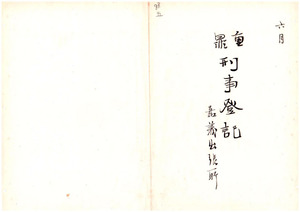 六月
重罪
刑事登記
嘉義出張所